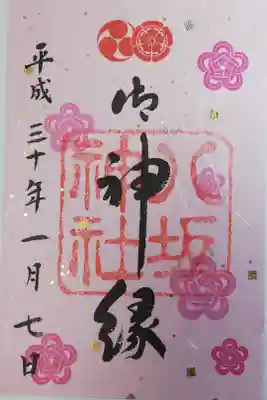 御神縁
八坂神社
平成三十年一月七日